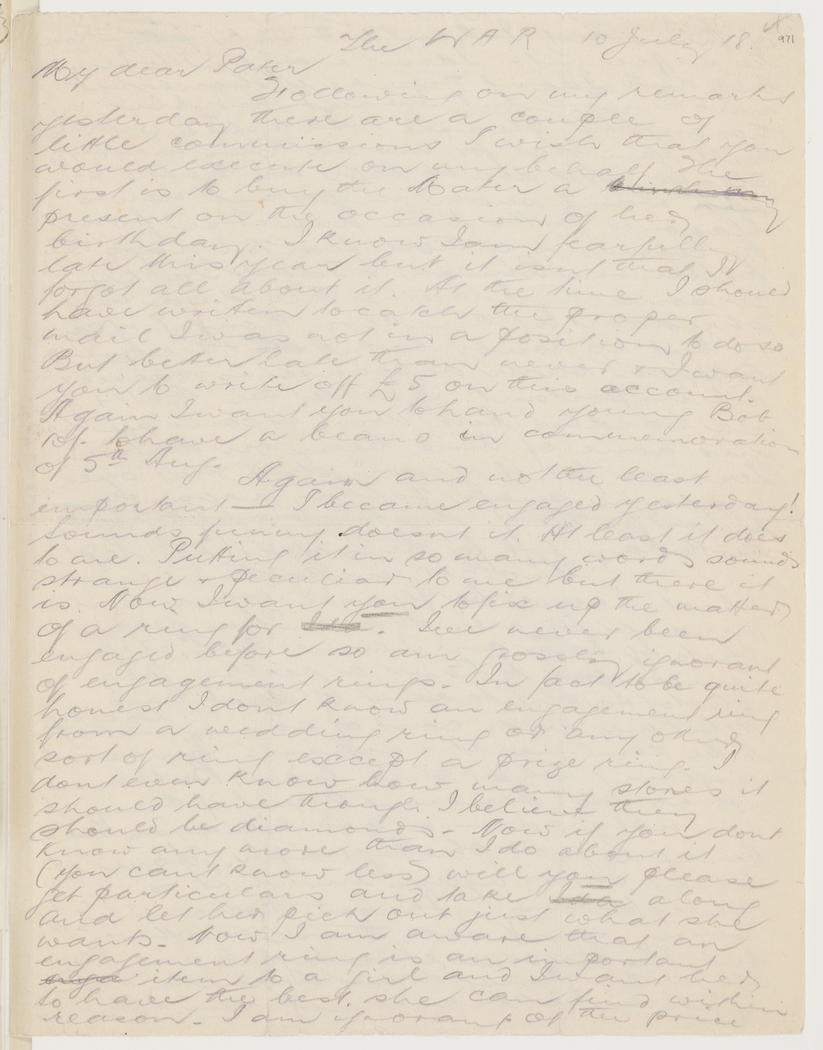 The WAR 10 July 18.
971
My dear Pater
Following on my remarks
yesterday there are a couple of
little commissions I wish that you
would execute on my behalf. The
first is to buy the Mater a
present on the occasion of her
birthday. I know I am fearfully
late this year but it isnt that I
forgot all about it. At the time I should
have written to catch the proper
mail I was not in a position to do so
But better late than never & I want
you to write off £5 on this account.
Again I want you to hand young Bob
10/- to have a beano in commemoration
of 5th Aug.
Again and not the least
important — I became engaged yesterday!
Sounds funny doesnt it. At least it does
to me. Putting it in so many words sounds
strange & peculiar to me but there it
is. Now I want you to fix up the matter
of a ring for . Ive never been
engaged before so am grossly ignorant
of engagement rings. In fact to be quite
honest I dont know an engagement ring
from a wedding ring or any other
sort of ring except a prize ring. I
dont even know how many stones it
should have though I believe they
should be diamonds. Now if you dont
know any more than I do about it
(you cant know less) will you please
get particulars and take along
and let her pick out just what she
wants. Now I am aware that an
engagement ring is an important
item to a girl and I want her
to have the best she can find within
reason. I am ignorant of the price